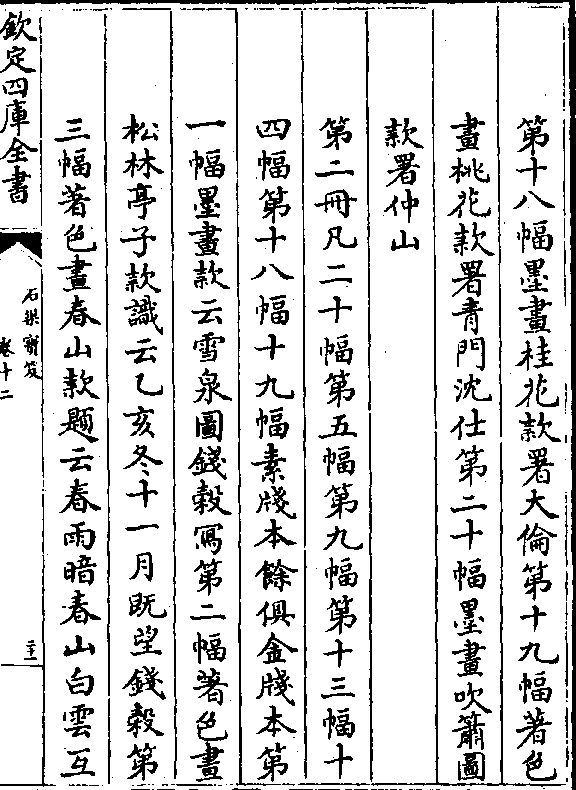 第十八幅墨畫桂花款署大倫第十九幅著色
畫桃花款署青門沈仕第二十幅墨畫吹簫圖
款署仲山
第二冊凡二十幅第五幅第九幅第十三幅十
四幅第十八幅十九幅素牋本餘俱金牋本第
一幅墨畫款云雪泉圖錢榖寫第二幅著色畫
松林亭子款識云乙亥冬十一月既望錢榖第
三幅著色畫春山款題云春雨暗春山白雲互
欽定四庫全書
石渠寳笈
卷十二
二十一